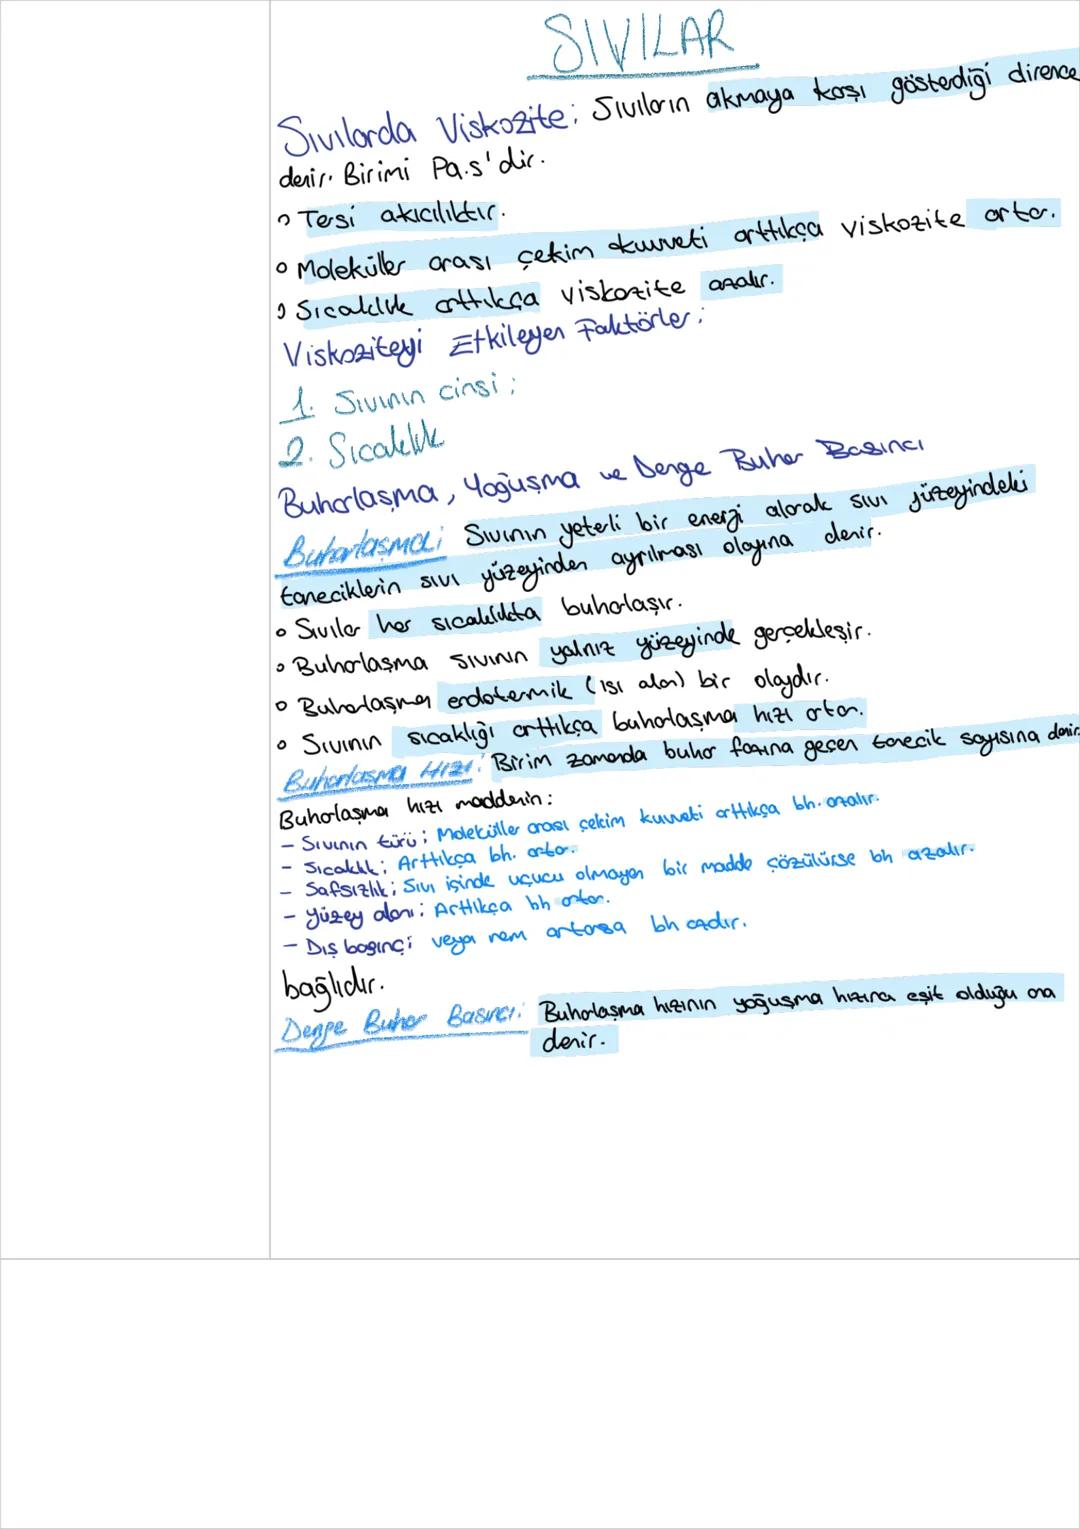 SIVILAR
Sıvılarda Viskozite; Sıvıların akmaya koşı gösterdiği dirence
denir. Birimi Pa.s'dir.
Tersi akıcılıktır.
Moleküller arası çekim kuvveti arttıkça viskozite artar.
Sıcaklık arttıkça viskozite azalır.
Viskoziteyi Etkileyen Faktörler;
1. Sıvının cinsi;
2. Sıcaklık
Buharlaşma, Yoğuşma ve Denge Buhar Basıncı
Buharlaşma; Sıvının yeterli bir enerji alarak sıvı yüzeyindeki
taneciklerin sıvı yüzeyinden ayrılması olayına denir.
Sıvılar her sıcaklıkta buharlaşır.
Buharlaşma sıvının yalnız yüzeyinde gerçekleşir.
Buharlaşma endotermik (ısı alan) bir olaydır.
Sıvının sıcaklığı arttıkça buharlaşma hızı artar.
Buharlaşma Hızı: Birim zamanda buhar fazına geçen tanecik sayısına denir.
Buharlaşma hızı maddenin:
- Sıvının türü; Moleküller arası çekim kuvveti arttıkça bh. azalır.
- Sıcaklık; Arttıkça bh. artar.
- Safsızlık; Sıvı içinde uçucu olmayan bir madde çözülürse bh azalır.
- Yüzey alanı; Arttıkça bh artar.
- Dış basınç; veya nem artarsa bh azalır.
bağlıdır.
Denge Buhar Basıncı: Buharlaşma hızının yoğuşma hızına eşit olduğu ana
denir.